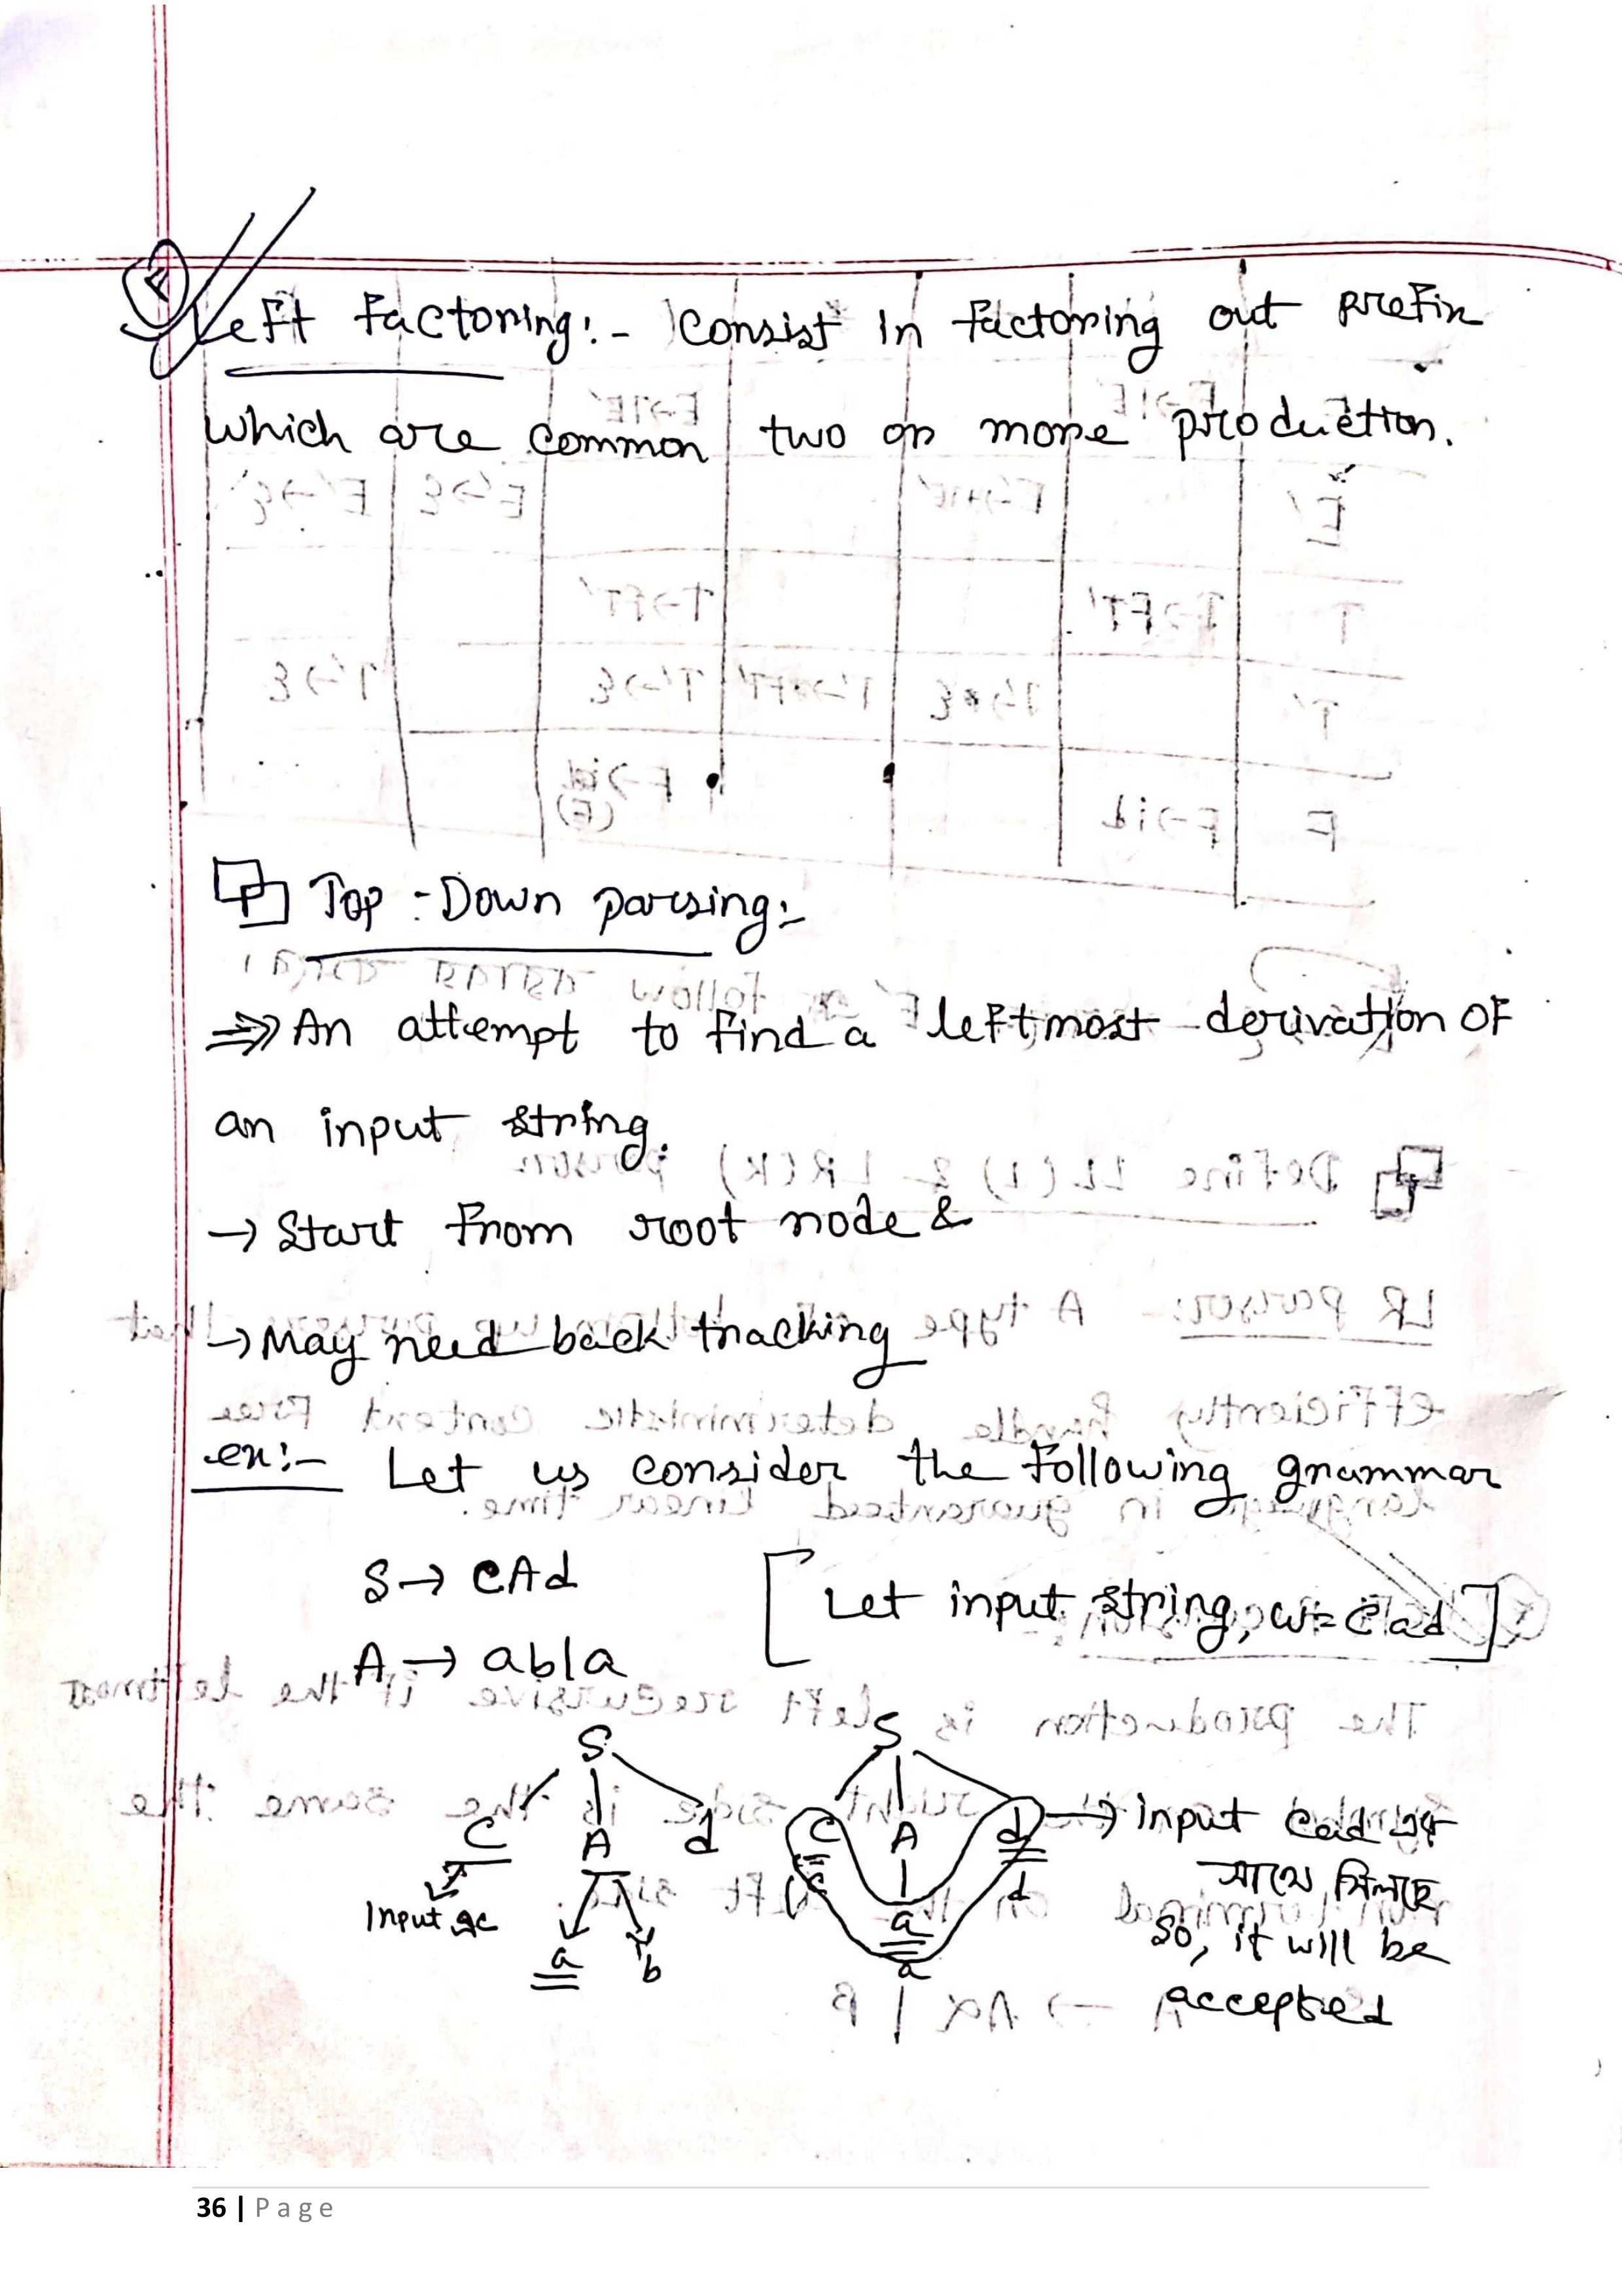 Left Factoring:- Consist in factoring out prefix
which are common two or more production.
Top-Down parsing:-
⇒ An attempt to find a leftmost derivation OF
an input string.
→ Start from root node &
→ May need back tracking
ex:- Let us consider the following grammar
S → cAd [Let input string, w = cad]
A → ab|a
S S
c A d c A d → input cad এর
সাথে মিলছে
input এ c c a d
a b a so, it will be
accepted
36 | Page